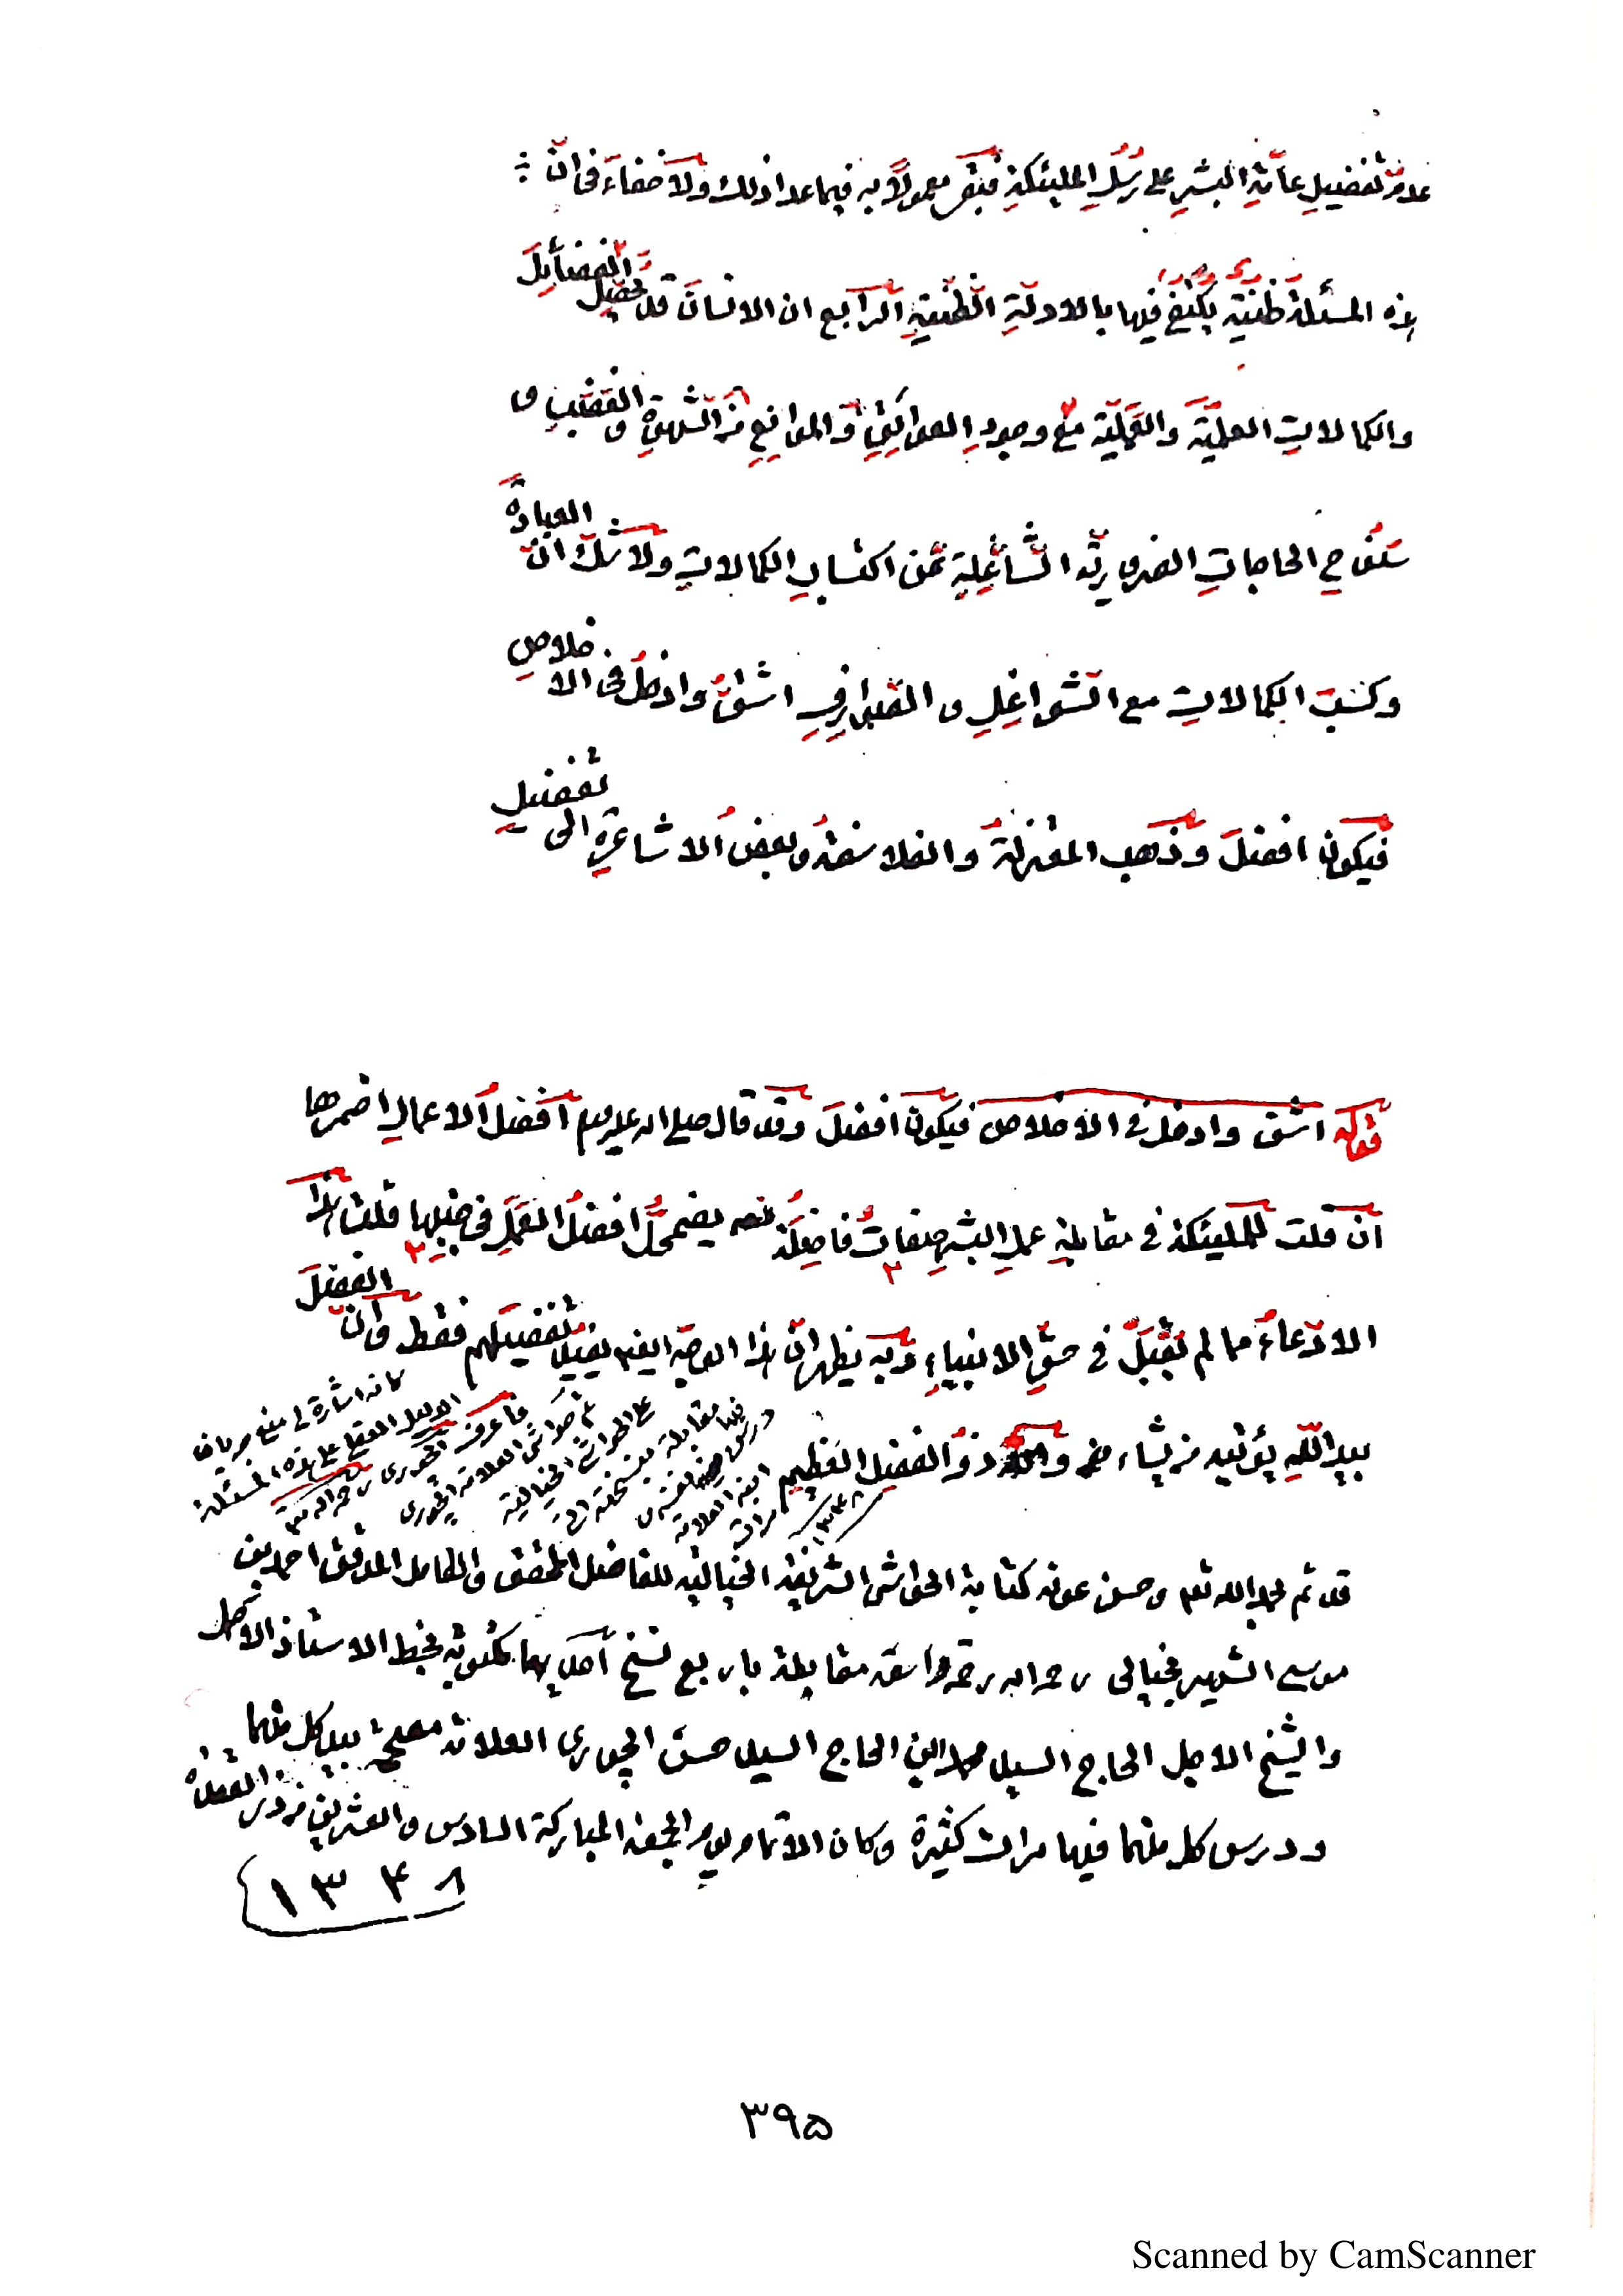 عدم تفضيل عامّة البشر على رسل الملئكة فبقى معمولاً به فيما عدا ذلك ولا خفاء فى انّ
هذه المسئلة ظنّيّة يكتفى فيها بالادلّة الظّنّيّة الرّابع ان الانسان قد يحصّل الفضائل
والكمالات العلميّة والعمليّة مع وجود العوائق والموانع من الشّهوة والغضب و
سنوح الحاجات الضروريّة الشّاغلة عن اكتساب الكمالات ولا شكّ انّ العبادة
وكسب الكمالات مع الشّواغل و الصّوارف اشقّ وادخل فى الاخلاص
فيكون افضل وذهب المعتزلة والفلاسفة وبعض الاشاعرة الى تفضيل
قوله اشق وادخل فى الاخلاص فيكون افضل وقد قال صلى الله عليه وسلم افضل الاعمال احمزها
ان قلت للملئكة فى مقابلة عمل البشر صفات فاضلة يضمحلّ افضل العمل فى جنبها قلت هذا
الادّعاء مما لم يقبل فى حقّ الانبياء وبه يظهر انّ هذا الوجه ايضا يفيد تفضيلهم فقط وانّ الفضل
بيد اللّه يؤتيه من يشاء والله ذو الفضل العظيم
كانه اشارة الى منع جريان
الدليل العقلى على هذه المسئلة
فاعرف الجورى رحمه الله
تم حواشى العلامة الجورى
على الحواشى الخيالية
١٣٤٨
قد تم بحمد الله تعه وحسن عونه كتابة الحواشى الشريفة الخيالية للفاضل المحقق والكامل المدقق احمد بن
موسى الشهير بخيالى رحمه الله رحمة واسعة مقابلة باربع نسخ احديها مكتوبة بخط الاستاذ الاكمل
والشيخ الاجل الحاج السيد محمد ابن الحاج السيد حسن الجورى العلامة مصححة بيد كل منهما
ودرس كل منهما فيها مرات كثيرة وكان الاتمام يوم الجمعة المباركة السادس والعشرين من ذى القعدة
١٣٤٨
٣٩۵
Scanned by CamScanner